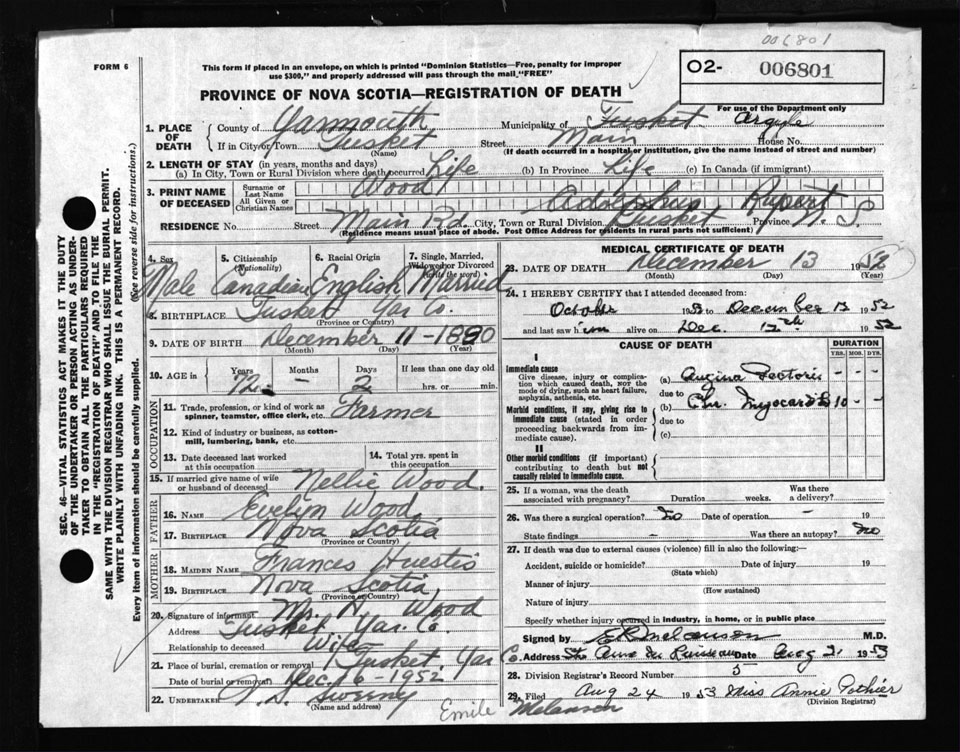 006801
FORM 6
This form if placed in an envelope, on which is printed "Dominion Statistics—Free, penalty for improper
use $300," and properly addressed will pass through the mail "FREE"
O2- 006801
For use of the Department only
PROVINCE OF NOVA SCOTIA—REGISTRATION OF DEATH
1. PLACE OF DEATH { County of Yarmouth Municipality of Tusket Argyle
If in City or Town Tusket (Name) Street Main House No.
(If death occurred in a hospital or institution, give the name instead of street and number)
2. LENGTH OF STAY (in years, months and days)
(a) In City, Town or Rural Division where death occurred Life (b) In Province Life (c) In Canada (if immigrant)
3. PRINT NAME OF DECEASED { Surname or Last Name Wood
All Given or Christian Names Adolphus Rupert
RESIDENCE No. Street Main Rd. City, Town or Rural Division Tusket Province N. S.
(Residence means usual place of abode. Post Office Address for residents in rural parts not sufficient)
4. Sex 5. Citizenship (Nationality) 6. Racial Origin 7. Single, Married, Widowed or Divorced (write the word)
Male Canadian English Married
8. BIRTHPLACE Tusket Yar Co.
(Province or Country)
9. DATE OF BIRTH December 11 - 1880
(Month) (Day) (Year)
10. AGE in { Years Months Days If less than one day old
72 - 2 hrs. or min.
OCCUPATION
11. Trade, profession, or kind of work as spinner, teamster, office clerk, etc. Farmer
12. Kind of industry or business, as cotton-mill, lumbering, bank, etc.
13. Date deceased last worked at this occupation 14. Total yrs. spent in this occupation
15. If married give name of wife or husband of deceased Nellie Wood.
FATHER
16. NAME Evelyn Wood
17. BIRTHPLACE Nova Scotia
(Province or Country)
MOTHER
18. MAIDEN NAME Frances Huestis
19. BIRTHPLACE Nova Scotia
(Province or Country)
20. Signature of informant Mrs. N. Wood
Address Tusket Yar. Co.
Relationship to deceased Wife
21. Place of burial, cremation or removal Tusket, Yar Co.
Date of burial or removal Dec. 16 - 1952
22. UNDERTAKER Sweeney
(Name and address)
Emile Melanson
MEDICAL CERTIFICATE OF DEATH
23. DATE OF DEATH December 13 19
(Month) (Day) (Year)
24. I HEREBY CERTIFY that I attended deceased from:
October 1952 to December 13 1952
and last saw him alive on Dec. 12th 1952
CAUSE OF DEATH DURATION
YRS. MOS. DYS.
I
Immediate cause
Give disease, injury or complication which caused death, not the mode of dying, such as heart failure, asphyxia, asthenia, etc.
(a) Angina Pectoris - - -
due to
Morbid conditions, if any, giving rise to immediate cause (stated in order proceeding backwards from immediate cause).
(b) Chr. Myocarditis 10 - -
due to
(c)
II
Other morbid conditions (if important) contributing to death but not causally related to immediate cause.
25. If a woman, was the death associated with pregnancy? Duration weeks. Was there a delivery?
26. Was there a surgical operation? No Date of operation - 19
State findings - Was there an autopsy? No
27. If death was due to external causes (violence) fill in also the following:—
Accident, suicide or homicide? Date of injury 19
(State which)
Manner of injury
(How sustained)
Nature of injury
Specify whether injury occurred in industry, in home, or in public place
Signed by E R Melanson M.D.
Address Ste Anne du Ruisseau Date Aug 21 1953
28. Division Registrar's Record Number 5
29. Filed Aug 24 1953 Miss Annie Pothier
(Division Registrar)
SEC. 46—VITAL STATISTICS ACT MAKES IT THE DUTY
OF THE UNDERTAKER OR PERSON ACTING AS UNDER-
TAKER TO OBTAIN ALL THE PARTICULARS REQUIRED
IN THE "REGISTRATION OF DEATH" AND TO FILE THE
SAME WITH THE DIVISION REGISTRAR WHO SHALL ISSUE THE BURIAL PERMIT.
WRITE PLAINLY WITH UNFADING INK. THIS IS A PERMANENT RECORD.
Every item of information should be carefully supplied. (See reverse side for instructions.)